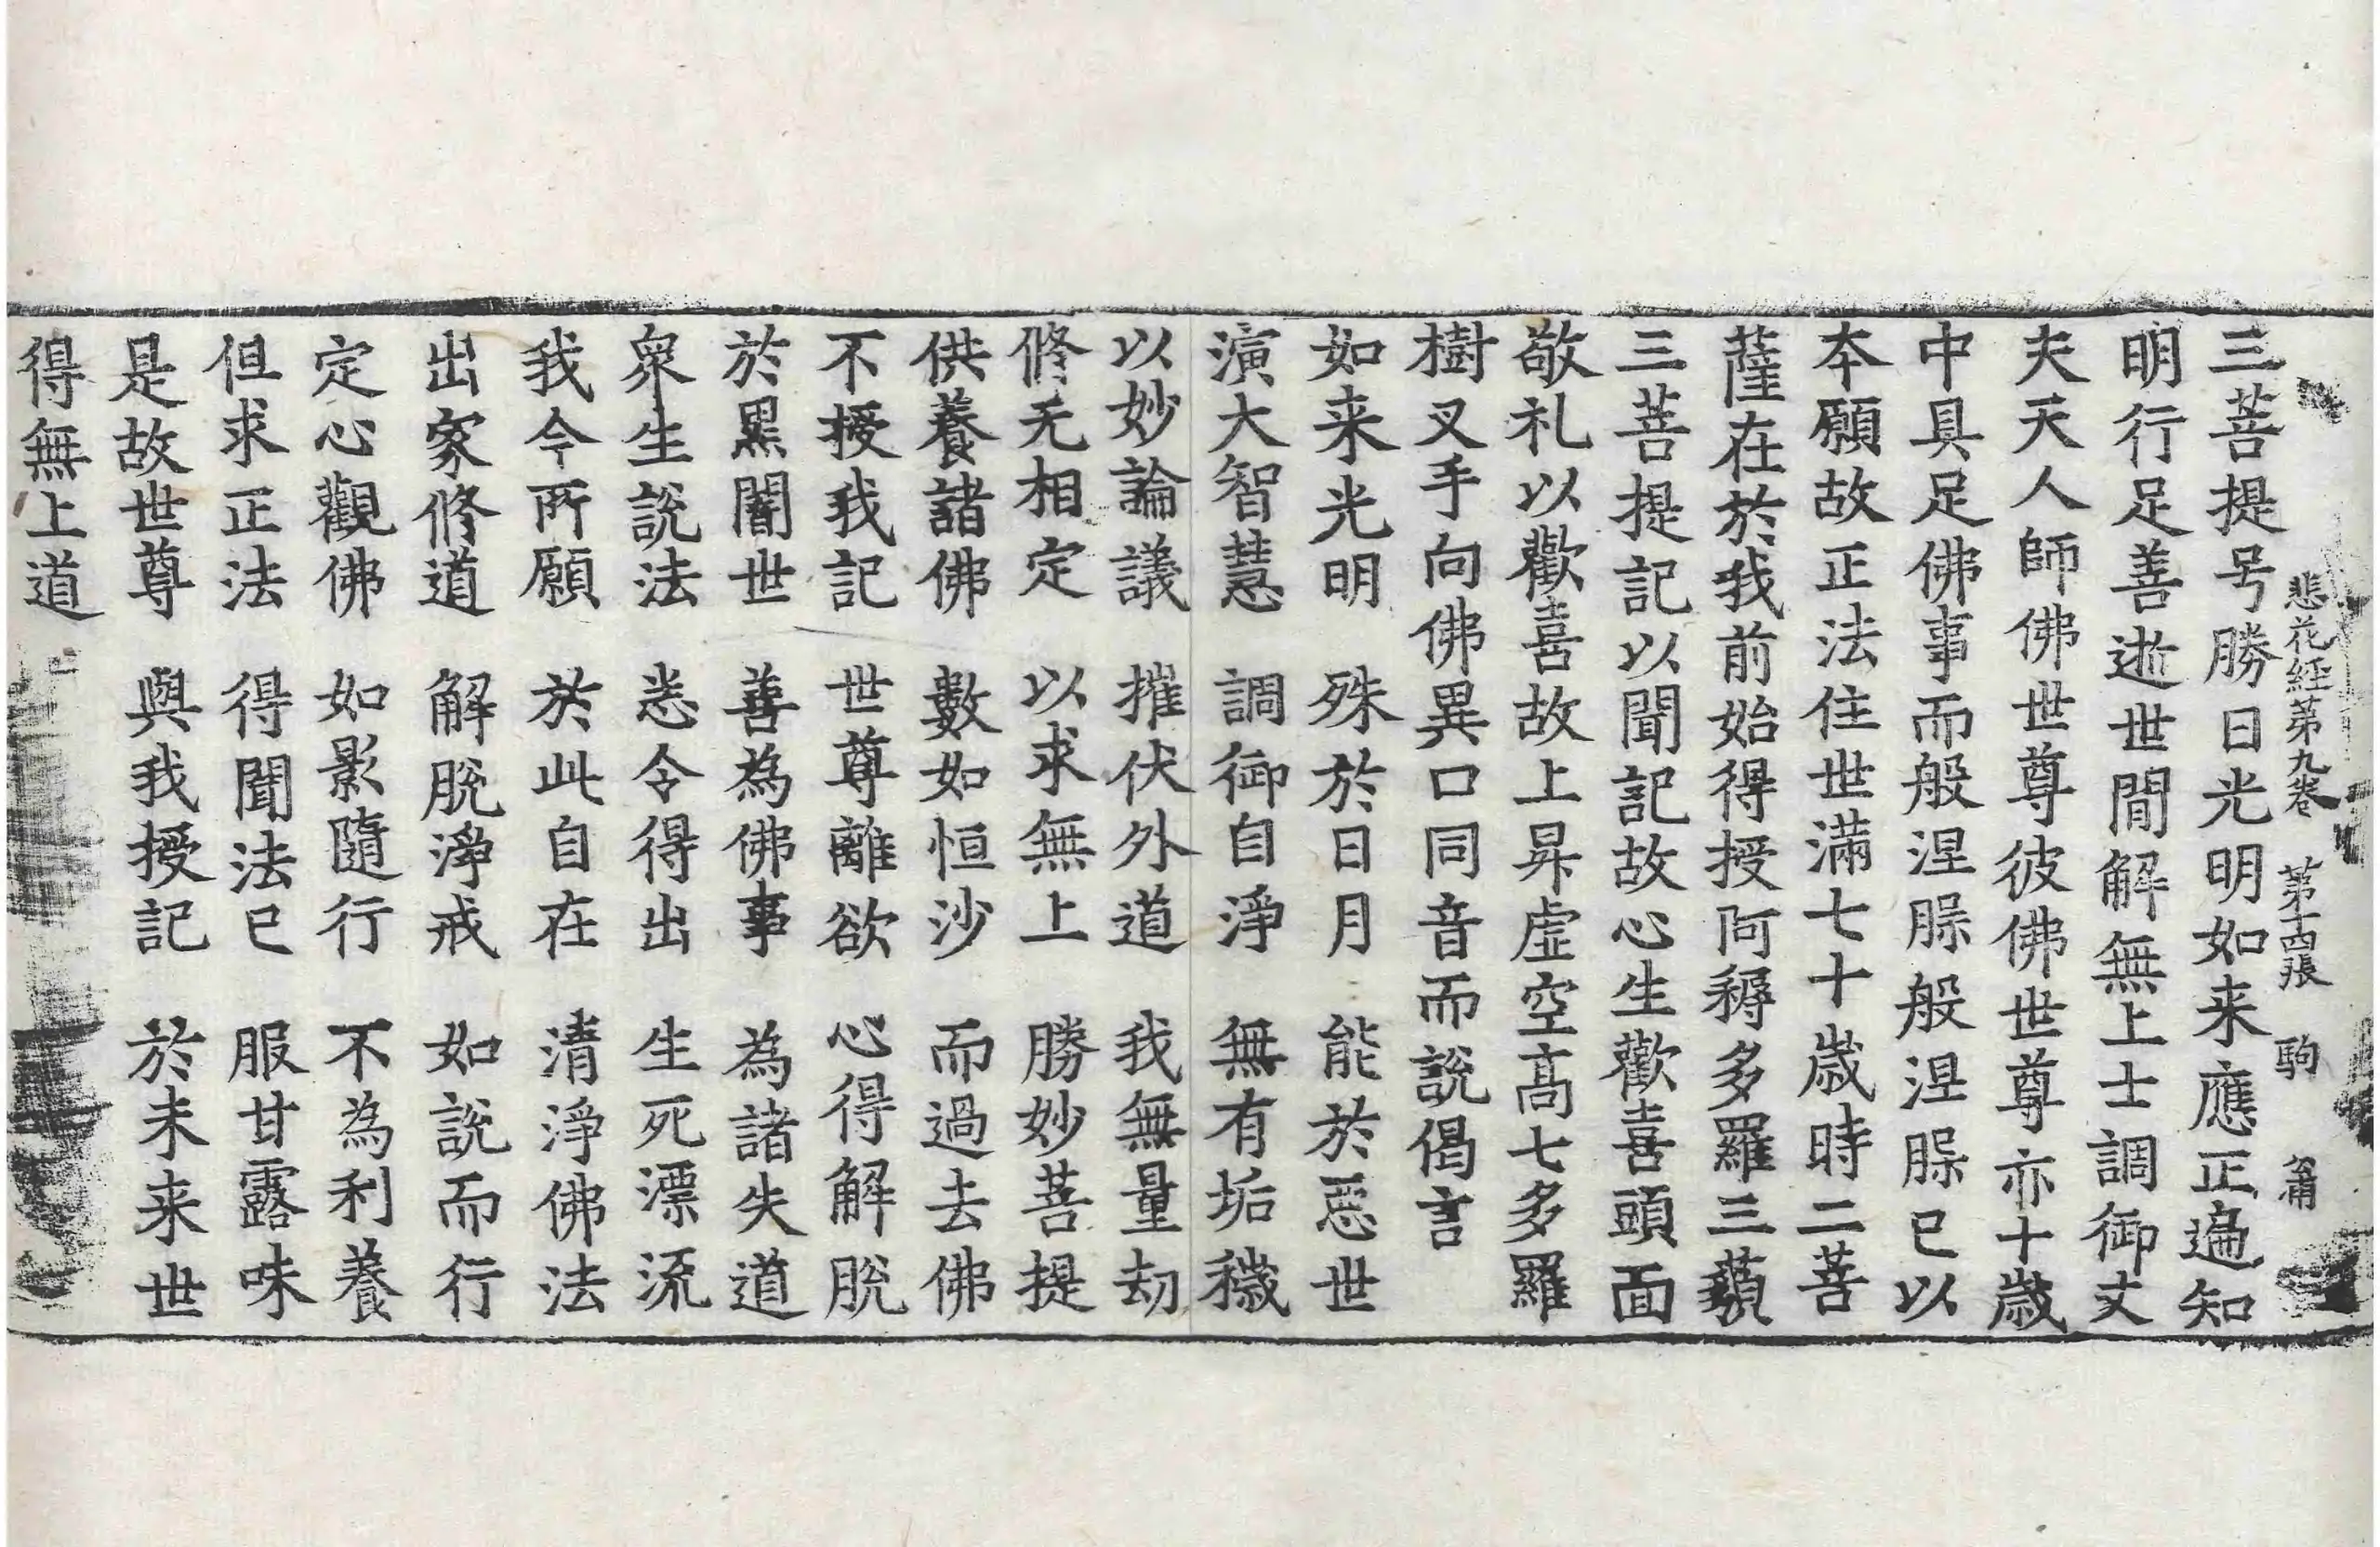 悲花經第九卷　第十四張　駒
三菩提号勝日光明如来應正遍知
明行足善逝世間解無上士調御丈
夫天人師佛世尊彼佛世尊亦十歲
中具足佛事而般涅槃般涅槃已以
本願故正法住世滿七十歲時二菩
薩在於我前始得授阿耨多羅三藐
三菩提記以聞記故心生歡喜頭面
敬礼以歡喜故上昇虛空高七多羅
樹叉手向佛異口同音而說偈言
如来光明　殊於日月　能於惡世
演大智慧　調御自淨　無有垢穢
以妙論議　摧伏外道　我無量劫
修无相定　以求無上　勝妙菩提
供養諸佛　數如恒沙　而過去佛
不授我記　世尊離欲　心得解脫
於黑闇世　善為佛事　為諸失道
衆生說法　悉令得出　生死漂流
我今所願　於此自在　清淨佛法
出家修道　解脫淨戒　如說而行
定心觀佛　如影隨行　不為利養
但求正法　得聞法已　服甘露味
是故世尊　與我授記　於未来世
得無上道